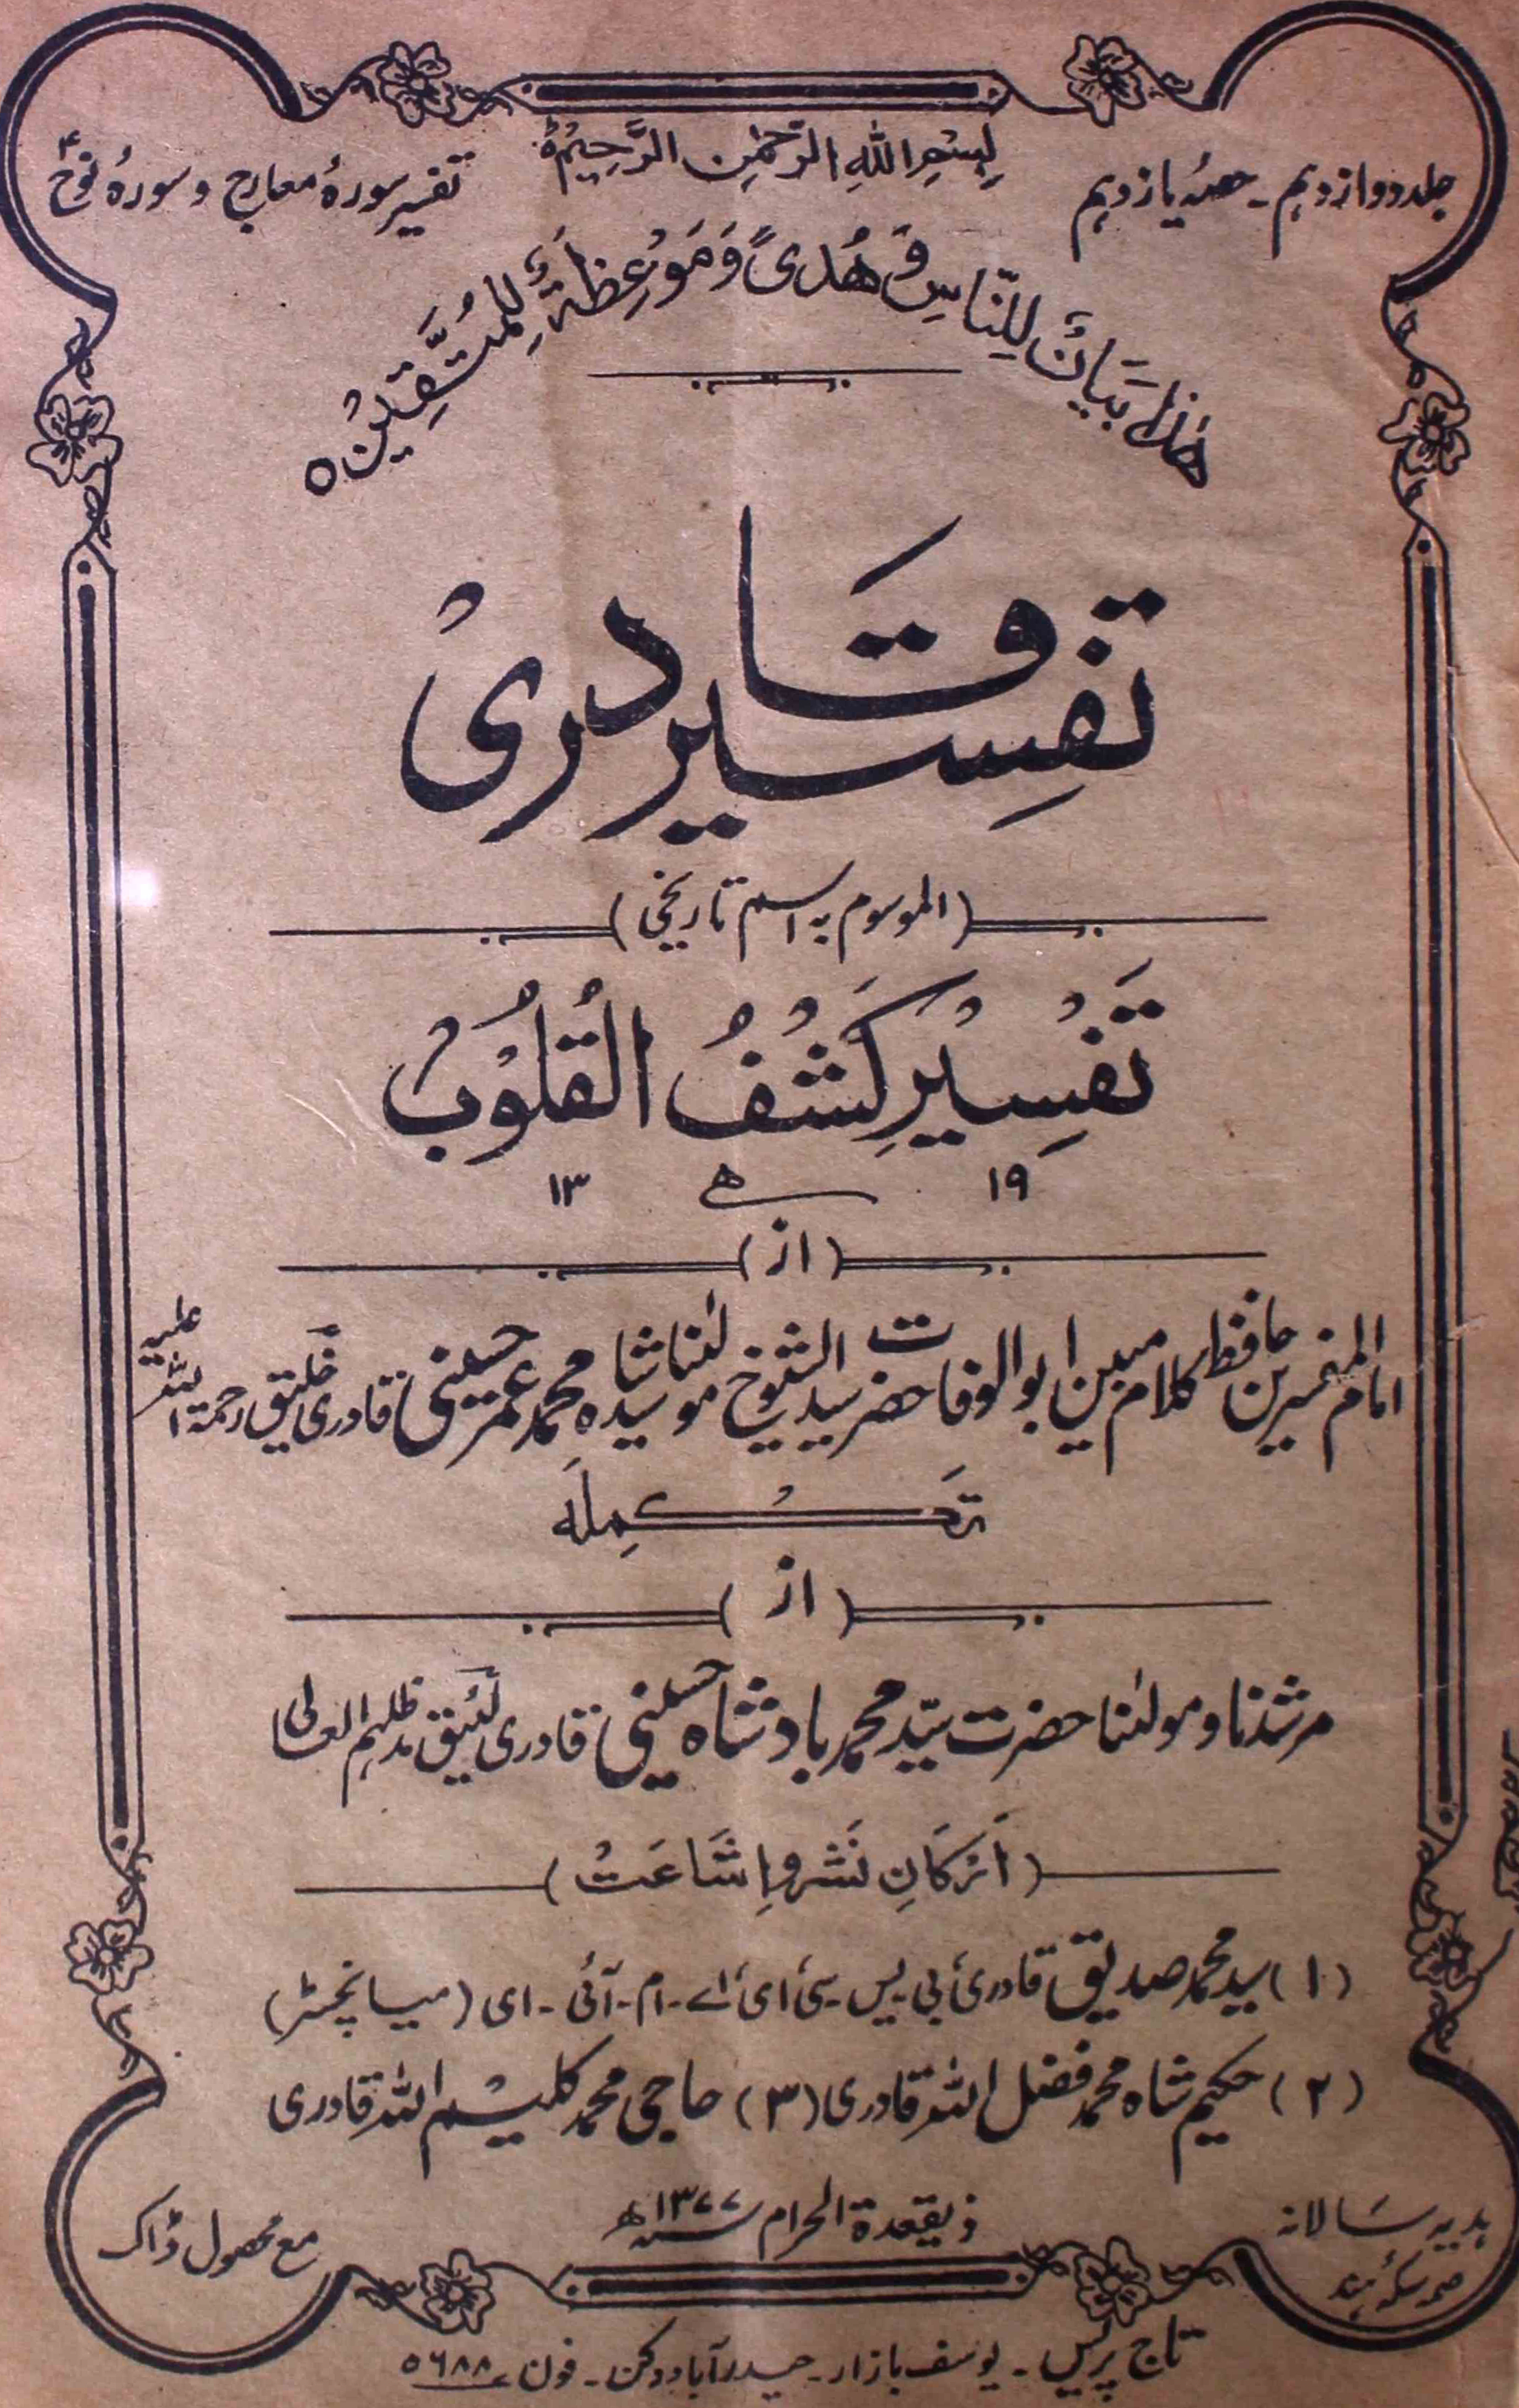 بِسْمِ اللّٰهِ الرَّحْمٰنِ الرَّحِيْمِ
جلد دوازدہم ۔ حصۂ یازدہم
تفسیر سورۂ معارج و سورۂ نوحؑ
هٰذَا بَيَانٌ لِلنَّاسِ وَ هُدًى وَ مَوْعِظَةٌ لِلْمُتَّقِيْنَ ○
تفسِیر قَادری
(الموسوم بہ اسم تاریخی)
تَفْسِیْرِ کَشْفُ الْقُلُوْبْ
۱۹ ھ ۱۳
(از)
امام المفسرین حافظ کلام مبین ابوالوفا حضرت سید الشیوخ مولٰنا سید شاہ محمد عمر حسینی قادری خلیق رحمۃ اللہ علیہ
تَکْمِلَہ
(از)
مرشدنا و مولٰنا حضرت سیّد محمد بادشاہ حسینی قادری لئیق مدظلہم العالی
(اَرْکَانِ نَشْر و اِشَاعَتْ)
(۱) سید محمد صدیق قادری بی۔یس۔سی، ای، اے۔ام۔آئی۔ای (میسانچسٹر)
(۲) حکیم شاہ محمد فضل اللہ قادری (۳) حاجی محمد کلیم اللہ قادری
ذیقعدۃ الحرام ۱۳۷۷ھ
ہدیہ سَالانہ
سکۂ ہند
مع محصول ڈاک
تاج پریس ۔ یوسف بازار ۔ حیدرآباد دکن ۔ فون ۵۶۸۸